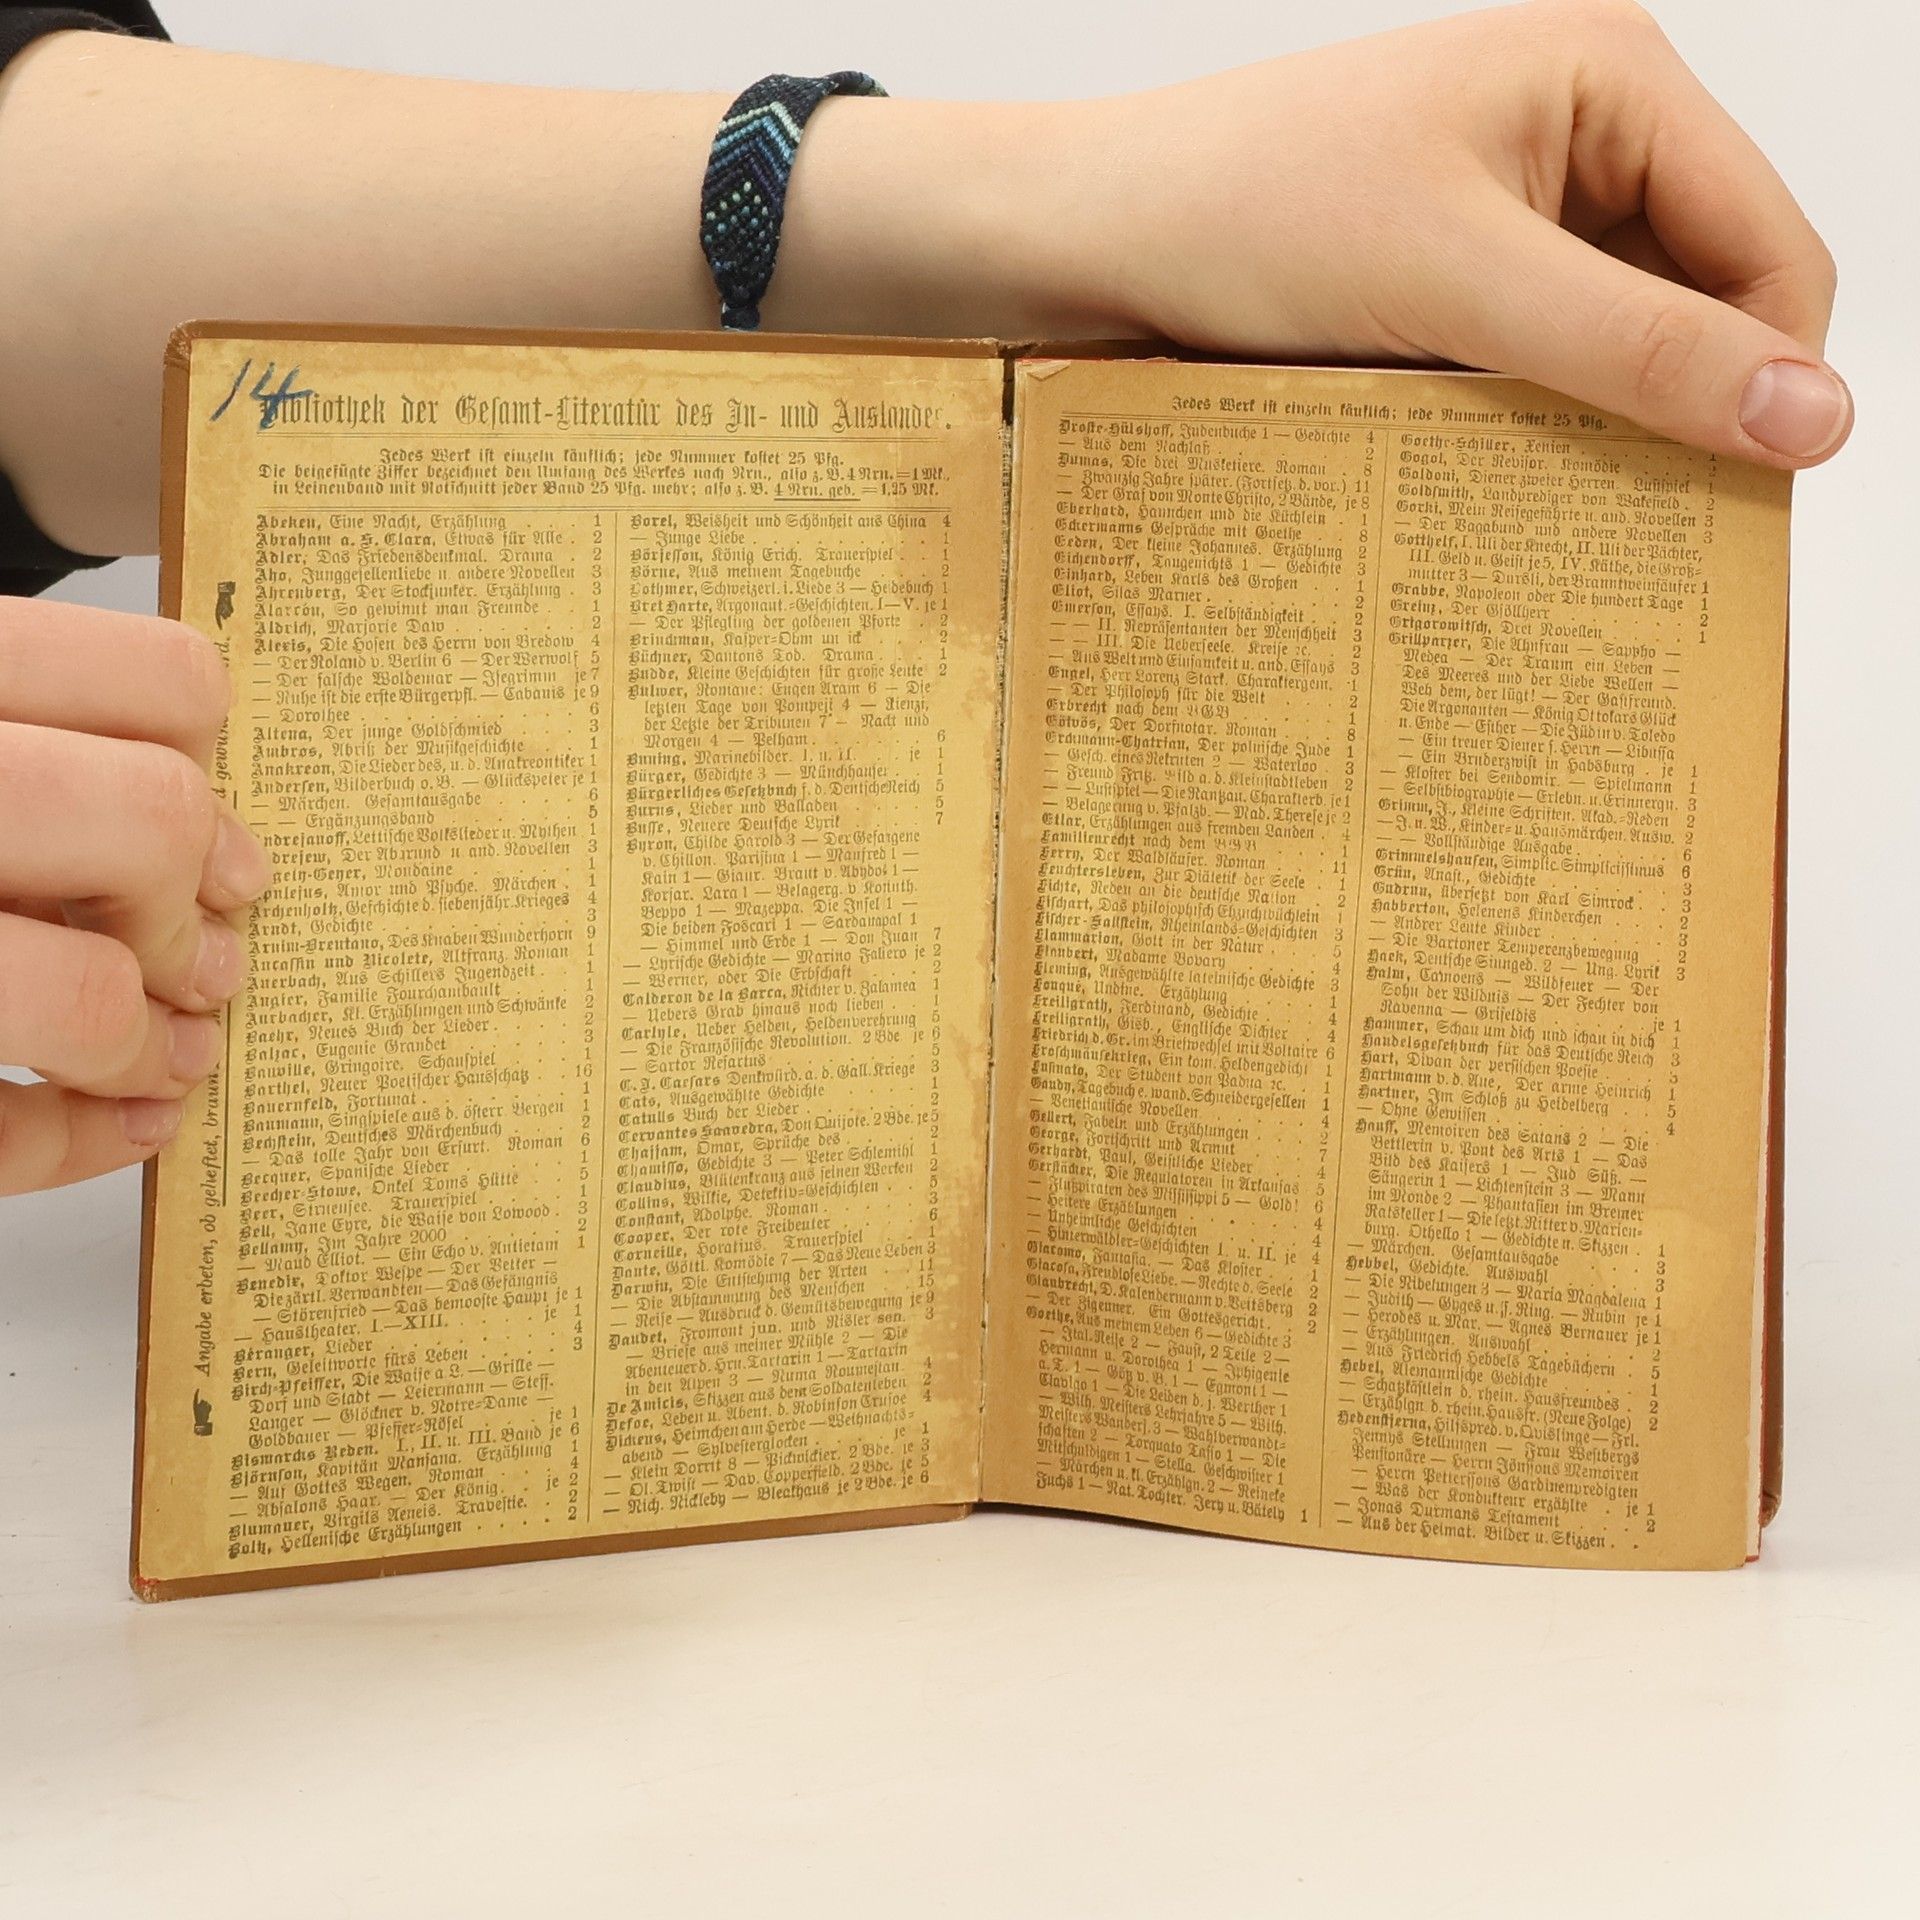 14
Bibliothek der Gesamt-Literatur des In- und Auslandes.
Jedes Werk ist einzeln käuflich; jede Nummer kostet 25 Pfg.
Die beigefügte Ziffer bezeichnet den Umfang des Werkes nach Nrn., also z. B. 4 Nrn. = 1 Mk.,
in Leinenband mit Rotschnitt jeder Band 25 Pfg. mehr; also z. B. 4 Nrn. geb. = 1,25 Mk.
Angabe erbeten, ob geheftet, braun
Abeken, Eine Nacht, Erzählung . . . 1
Abraham a. S. Clara, Etwas für Alle . 2
Adler, Das Friedensdenkmal. Drama . 2
Aho, Junggesellenliebe u. andere Novellen 3
Ahrenberg, Der Stockjunker. Erzählung . 3
Alarcón, So gewinnt man Freunde . . 1
Aldrich, Marjorie Daw . . . . . 2
Alexis, Die Hosen des Herrn von Bredow 4
— Der Roland v. Berlin 6 — Der Werwolf 5
— Der falsche Woldemar — Isegrimm je 7
— Ruhe ist die erste Bürgerpfl. — Cabanis je 9
— Dorothee . . . . . . . 6
Altena, Der junge Goldschmied . . . 3
Ambros, Abriß der Musikgeschichte . . 1
Anakreon, Die Lieder des, u. d. Anakreontiker 1
Andersen, Bilderbuch o. B. — Glückspeter je 1
— Märchen. Gesamtausgabe . . . . 6
— — Ergänzungsband . . . . . 5
Andrejanoff, Lettische Volkslieder u. Mythen 1
drejew, Der Abgrund u. and. Novellen 3
gein-Geyer, Mondaine . . . . 1
Apulejus, Amor und Psyche. Märchen . 1
Archenholtz, Geschichte d. siebenjähr. Krieges 4
Arndt, Gedichte . . . . . . 3
Arnim-Brentano, Des Knaben Wunderhorn 9
Aucassin und Nicolete, Altfranz. Roman 1
Auerbach, Aus Schillers Jugendzeit . . 1
Augier, Familie Fourchambault . . . 1
Aurbacher, Kl. Erzählungen und Schwänke 2
Baehr, Neues Buch der Lieder . . . 2
Balzac, Eugenie Grandet . . . . 3
Banville, Gringoire. Schauspiel . . . 1
Barthel, Neuer Poetischer Hausschatz . . 16
Bauernfeld, Fortunat . . . . . 1
Baumann, Singspiele aus d. österr. Bergen 1
Bechstein, Deutsches Märchenbuch . . . 2
— Das tolle Jahr von Erfurt. Roman 6
Becquer, Spanische Lieder . . . . 1
Beecher-Stowe, Onkel Toms Hütte . . 5
Beer, Struensee. Trauerspiel . . . . 1
Bell, Jane Eyre, die Waise von Lowood . 3
Bellamy, Im Jahre 2000 . . . . 2
— Maud Elliot. — Ein Echo v. Antietam 1
Benedix, Doktor Wespe — Der Vetter —
Die zärtl. Verwandten — Das Gefängnis
— Störenfried — Das bemooste Haupt je 1
— Haustheater. I.—XIII. . . . je 1
Béranger, Lieder . . . . . . 4
Bern, Geleitworte fürs Leben . . . . 3
Birch-Pfeiffer, Die Waise a. L. — Grille —
Dorf und Stadt — Leiermann — Steff.
Langer — Glöckner v. Notre-Dame —
Goldbauer — Pfeffer-Rösel . . . je 1
Bismarcks Reden. I., II. u. III. Band je 6
Björnson, Kapitän Mansana. Erzählung 1
— Auf Gottes Wegen. Roman . . . 4
— Absalons Haar. — Der König. . je 2
Blumauer, Virgils Aeneis. Travestie. . 2
Boltz, Hellenische Erzählungen . . . . 2
Borel, Weisheit und Schönheit aus China 4
— Junge Liebe . . . . . . 1
Börjesson, König Erich. Trauerspiel . . 1
Börne, Aus meinem Tagebuche . . . 2
Bothmer, Schweizerl. i. Liede 3 — Heidebuch 1
Bret Harte, Argonaut.-Geschichten. I.—V. je 1
— Der Pflegling der goldenen Pforte . 2
Brinckman, Kasper-Ohm un ick . . . 2
Büchner, Dantons Tod. Drama . . . 1
Budde, Kleine Geschichten für große Leute 2
Bulwer, Romane: Eugen Aram 6 — Die
letzten Tage von Pompeji 4 — Rienzi,
der Letzte der Tribunen 7 — Nacht und
Morgen 4 — Pelham . . . . . 6
Buning, Marinebilder. I. u. II. . . je 1
Bürger, Gedichte 3 — Münchhausen . . 1
Bürgerliches Gesetzbuch f. d. Deutsche Reich 5
Burns, Lieder und Balladen . . . . 5
Busse, Neuere Deutsche Lyrik . . . . 7
Byron, Childe Harold 3 — Der Gefangene
v. Chillon. Parisina 1 — Manfred 1 —
Kain 1 — Giaur. Braut v. Abydos 1 —
Korsar. Lara 1 — Belagerg. v. Korinth.
Beppo 1 — Mazeppa. Die Insel 1 —
Die beiden Foscari 1 — Sardanapal 1
— Himmel und Erde 1 — Don Juan 7
— Lyrische Gedichte — Marino Faliero je 2
— Werner, oder Die Erbschaft . . . 2
Calderon de la Barca, Richter v. Zalamea 1
— Uebers Grab hinaus noch lieben . . 1
Carlyle, Ueber Helden, Heldenverehrung 5
— Die Französische Revolution. 2 Bde. je 6
— Sartor Resartus . . . . . 5
C. J. Caesars Denkwürd. a. d. Gall. Kriege 3
Cats, Ausgewählte Gedichte . . . . 1
Catulls Buch der Lieder . . . . . 2
Cervantes Saavedra, Don Quijote. 2 Bde. je 5
Chajjam, Omar, Sprüche des . . . . 2
Chamisso, Gedichte 3 — Peter Schlemihl 1
Claudius, Blütenkranz aus seinen Werken 2
Collins, Wilkie, Detektiv-Geschichten . . 5
Constant, Adolphe. Roman . . . . 3
Cooper, Der rote Freibeuter . . . . 6
Corneille, Horatius. Trauerspiel . . . 1
Dante, Göttl. Komödie 7 — Das Neue Leben 3
Darwin, Die Entstehung der Arten . . 11
— Die Abstammung des Menschen . . 15
— Reise — Ausdruck d. Gemütsbewegung je 9
Daudet, Fromont jun. und Risler sen. . 3
— Briefe aus meiner Mühle 2 — Die
Abenteuer d. Hrn. Tartarin 1 — Tartarin
in den Alpen 3 — Numa Roumestan. 4
De Amicis, Skizzen aus dem Soldatenleben 2
Defoe, Leben u. Abent. d. Robinson Crusoe 4
Dickens, Heimchen am Herde — Weihnachts-
abend — Sylvesterglocken . . . je 1
— Klein Dorrit 8 — Pickwickier. 2 Bde. je 3
— Ol. Twist — Dav. Copperfield. 2 Bde. je 5
— Nich. Nickleby — Bleakhaus je 2 Bde. je 6
Jedes Werk ist einzeln käuflich; jede Nummer kostet 25 Pfg.
Droste-Hülshoff, Judenbuche 1 — Gedichte 4
— Aus dem Nachlaß . . . . . 2
Dumas, Die drei Musketiere. Roman . 8
— Zwanzig Jahre später. (Fortsetz. d. vor.) 11
— Der Graf von Monte Christo, 2 Bände, je 8
Eberhard, Hannchen und die Küchlein . 1
Eckermanns Gespräche mit Goethe . . 8
Eeden, Der kleine Johannes. Erzählung 2
Eichendorff, Taugenichts 1 — Gedichte 3
Einhard, Leben Karls des Großen . . 1
Eliot, Silas Marner . . . . . . 2
Emerson, Essays. I. Selbständigkeit . . 2
— — II. Repräsentanten der Menschheit 3
— — III. Die Ueberseele. Kreise ꝛc. . 2
— Aus Welt und Einsamkeit u. and. Essays 3
Engel, Herr Lorenz Stark. Charaktergem. 1
— Der Philosoph für die Welt . . . 2
Erbrecht nach dem BGB . . . . . 1
Eötvös, Der Dorfnotar. Roman . . . 8
Erckmann-Chatrian, Der polnische Jude 1
— Gesch. eines Rekruten 2 — Waterloo . 3
— Freund Fritz. Bild a. d. Kleinstadtleben 2
— — Lustspiel — Die Rantzau. Charakterb. je 1
— Belagerung v. Pfalzb. — Mad. Therese je 2
Etlar, Erzählungen aus fremden Landen . 4
Familienrecht nach dem BGB . . . 1
Ferry, Der Waldläufer. Roman . . . 11
Feuchtersleben, Zur Diätetik der Seele . 1
Fichte, Reden an die deutsche Nation . . 2
Fischart, Das philosophisch Ehzuchtbüchlein 1
Fischer-Sallstein, Rheinlands-Geschichten 3
Flammarion, Gott in der Natur . . . 5
Flaubert, Madame Bovary . . . . 4
Fleming, Ausgewählte lateinische Gedichte 3
Fouqué, Undine. Erzählung . . . . 1
Freiligrath, Ferdinand, Gedichte . . . 4
Freiligrath, Gisb., Englische Dichter . . 4
Friedrich d. Gr. im Briefwechsel mit Voltaire 6
Froschmäusekrieg, Ein kom. Heldengedicht 1
Fusinato, Der Student von Padua ꝛc. . 1
Gaudy, Tagebuch e. wand. Schneidergesellen 1
— Venetianische Novellen . . . . . 4
Gellert, Fabeln und Erzählungen . . . 2
George, Fortschritt und Armut . . . 7
Gerhardt, Paul, Geistliche Lieder . . . 4
Gerstäcker, Die Regulatoren in Arkansas 5
— Flußpiraten des Mississippi 5 — Gold! 6
— Heitere Erzählungen . . . . . 4
— Unheimliche Geschichten . . . . 4
— Hinterwäldler-Geschichten I. u. II. je 4
Giacomo, Fantasia. — Das Kloster . . 1
Giacosa, Freudlose Liebe. — Rechte d. Seele 2
Glaubrecht, D. Kalendermann v. Veitsberg 2
— Der Zigeuner. Ein Gottesgericht . . 2
Goethe, Aus meinem Leben 6 — Gedichte 3
— Ital. Reise 2 — Faust, 2 Teile 2 —
Hermann u. Dorothea 1 — Iphigenie
a. T. 1 — Götz v. B. 1 — Egmont 1 —
Clavigo 1 — Die Leiden d. j. Werther 1
— Wilh. Meisters Lehrjahre 5 — Wilh.
Meisters Wanderj. 3 — Wahlverwandt-
schaften 2 — Torquato Tasso 1 — Die
Mitschuldigen 1 — Stella. Geschwister 1
— Märchen u. kl. Erzählgn. 2 — Reineke
Fuchs 1 — Nat. Tochter. Jery u. Bätely 1
Goethe-Schiller, Xenien . . . . . 1
Gogol, Der Revisor. Komödie . . . 2
Goldoni, Diener zweier Herren. Lustspiel 1
Goldsmith, Landprediger von Wakefield . 2
Gorki, Mein Reisegefährte u. and. Novellen 3
— Der Vagabund und andere Novellen 3
Gotthelf, I. Uli der Knecht, II. Uli der Pächter,
III. Geld u. Geist je 5, IV. Käthe, die Groß-
mutter 3 — Dursli, der Branntweinsäufer 1
Grabbe, Napoleon oder Die hundert Tage 1
Greinz, Der Gjöllherr . . . . . 2
Grigorowitsch, Drei Novellen . . . . 1
Grillparzer, Die Ahnfrau — Sappho —
Medea — Der Traum ein Leben —
Des Meeres und der Liebe Wellen —
Weh dem, der lügt! — Der Gastfreund.
Die Argonauten — König Ottokars Glück
u. Ende — Esther — Die Jüdin v. Toledo
— Ein treuer Diener s. Herrn — Libussa
— Ein Bruderzwist in Habsburg . je 1
— Kloster bei Sendomir. — Spielmann 1
— Selbstbiographie — Erlebn. u. Erinnergn. 3
Grimm, J., Kleine Schriften. Akad.-Reden 2
— J. u. W., Kinder- u. Hausmärchen. Ausw. 2
— Vollständige Ausgabe . . . . . 6
Grimmelshausen, Simplic. Simplicissimus 6
Grün, Anast., Gedichte . . . . . 3
Gudrun, übersetzt von Karl Simrock . . 3
Habberton, Helenens Kinderchen . . . 2
— Andrer Leute Kinder . . . . . 3
— Die Bartoner Temperenzbewegung . 2
Haek, Deutsche Sinnged. 2 — Ung. Lyrik 3
Halm, Camoens — Wildfeuer — Der
Sohn der Wildnis — Der Fechter von
Ravenna — Griseldis . . . . je 1
Hammer, Schau um dich und schau in dich 1
Handelsgesetzbuch für das Deutsche Reich 3
Hart, Divan der persischen Poesie . . . 3
Hartmann v. d. Aue, Der arme Heinrich 1
Hartner, Im Schloß zu Heidelberg . . 5
— Ohne Gewissen . . . . . . 4
Hauff, Memoiren des Satans 2 — Die
Bettlerin v. Pont des Arts 1 — Das
Bild des Kaisers 1 — Jud Süß. —
Sängerin 1 — Lichtenstein 3 — Mann
im Monde 2 — Phantasien im Bremer
Ratskeller 1 — Die letzt. Ritter v. Marien-
burg. Othello 1 — Gedichte u. Skizzen . 1
— Märchen. Gesamtausgabe . . . . 3
Hebbel, Gedichte. Auswahl . . . . 3
— Die Nibelungen 3 — Maria Magdalena 1
— Judith — Gyges u. s. Ring. — Rubin je 1
— Herodes u. Mar. — Agnes Bernauer je 1
— Erzählungen. Auswahl . . . . . 2
— Aus Friedrich Hebbels Tagebüchern . 5
Hebel, Alemannische Gedichte . . . . 1
— Schatzkästlein d. rhein. Hausfreundes . 2
— Erzählgn. d. rhein. Hausfr. (Neue Folge) 2
Hedenstjerna, Hilfspred. v. Qvislinge — Frl.
Jennys Stellungen — Frau Westbergs
Pensionäre — Herrn Jönssons Memoiren
— Herrn Petterssons Gardinenpredigten
— Was der Kondukteur erzählte . je 1
— Jonas Durmans Testament . . . 2
— Aus der Heimat. Bilder u. Skizzen . .